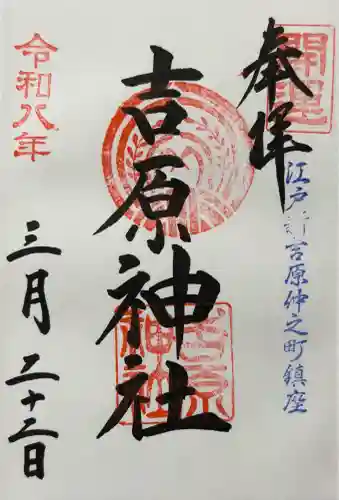 開運
奉拝
江戸新吉原仲之町鎮座
吉原神社
吉原神社
令和八年
三月二十三日